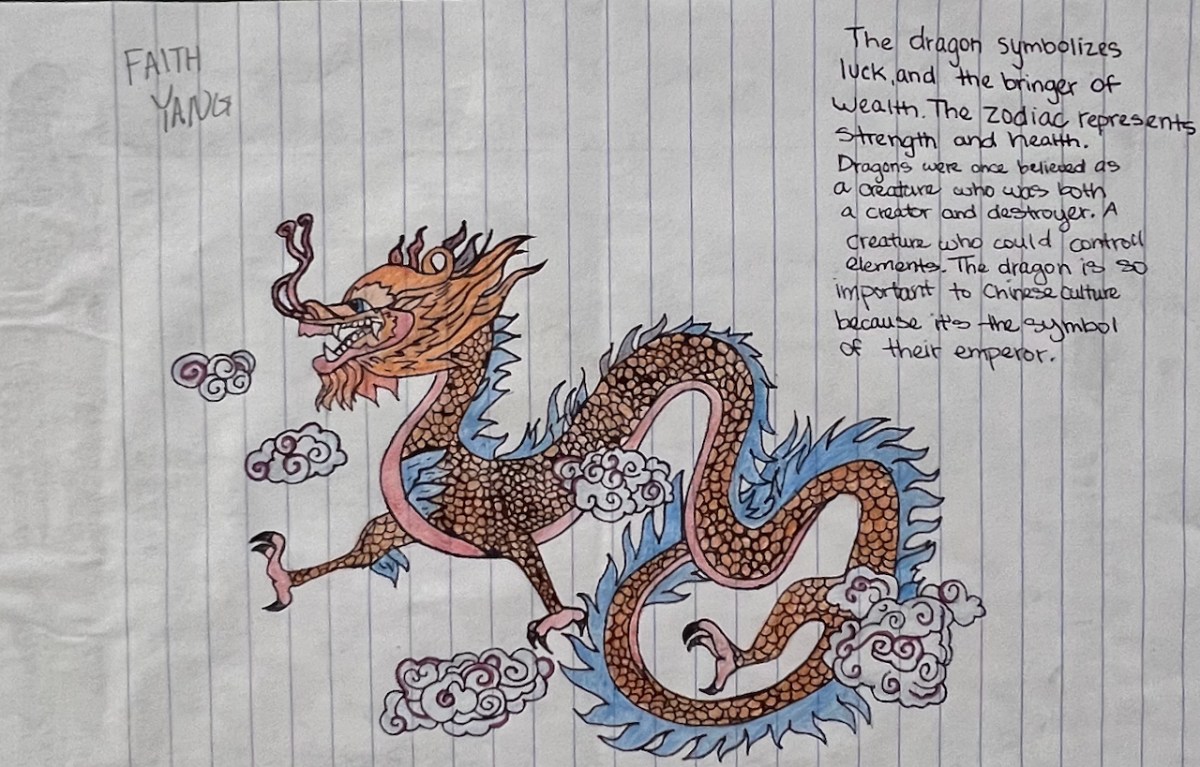 FAITH
YANG
The dragon symbolizes
luck, and the bringer of
wealth. The zodiac represents
strength and health.
Dragons were once believed as
a creature who was both
a creator and destroyer. A
creature who could controll
elements. The dragon is so
important to Chinese culture
because it's the symbol
of their emperor.